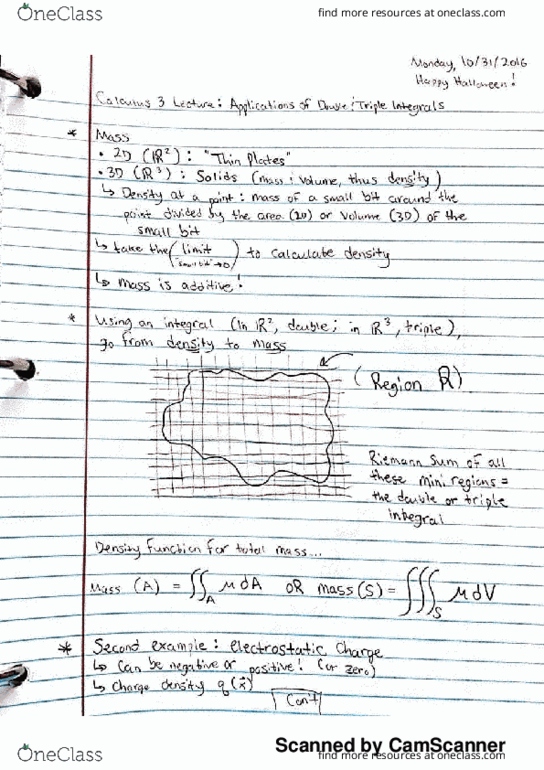 OneClass
find more resources at oneclass.com
Monday, 10/31/2016
Happy Halloween!
Calculus 3 Lecture: Applications of Double/Triple Integrals
* Mass
• 2D (ℝ²): "Thin Plates"
• 3D (ℝ³): Solids (mass & volume, thus density)
↳ Density at a point: mass of a small bit around the
point divided by the area (2D) or volume (3D) of the
small bit
↳ take the (limit "small bit"→0) to calculate density
↳ mass is additive!
* Using an integral (in ℝ², double; in ℝ³, triple),
go from density to mass
(Region R)
Riemann Sum of all
these mini regions =
the double or triple
integral
Density function for total mass...
Mass (A) = ∬_A μ dA OR mass(S) = ∭_S μ dV
* Second example: electrostatic Charge
↳ Can be negative or positive! (or zero)
↳ Charge density q(x⃗)
Con't
Scanned by CamScanner
OneClass
find more resources at oneclass.com